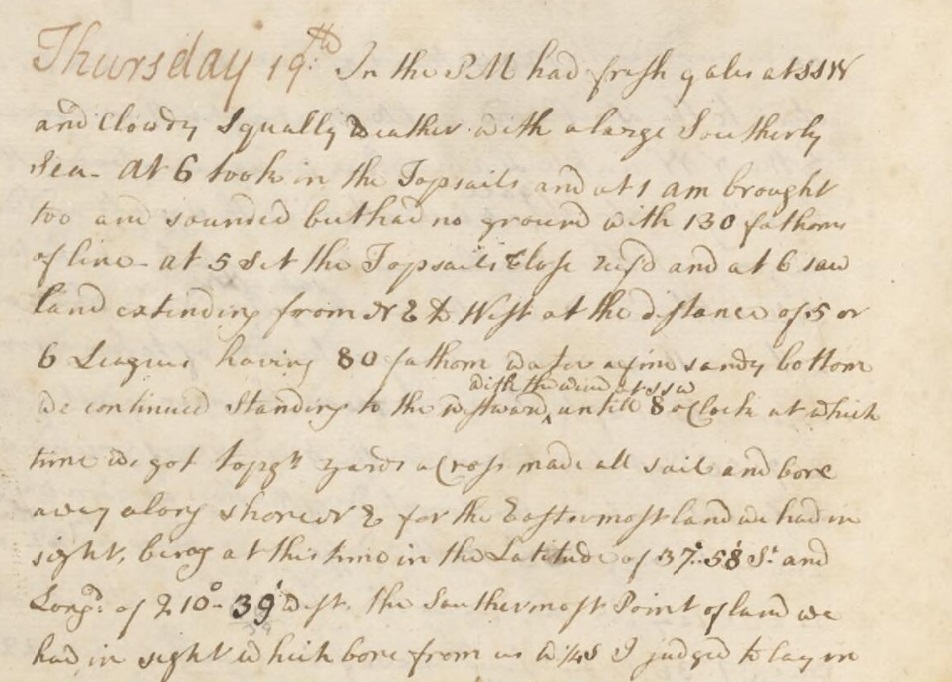 Thursday 19th. In the PM had fresh gales at SSW
and Clowdy Squally weather with a large Southerly
Sea - At 6 took in the Topsails and at 1 am brought
too and sounded but had no ground with 130 fathoms
of line - At 5 Set the Topsails Close reef'd and at 6 saw
land extending from NE to West at the distance of 5 or
6 Leagues having 80 fathom water a fine sandy bottom
with the wind at SSW
We continued Standing to the westward ^ untill 8 oClock at which
time we got topgt yards aCross made all sail and bore
away along shore NE for the Eastermost land we had in
sight, being at this time in the Latitude of 37°..58' St. and
Longd. of 210°.. 39' West. the Southermost Point of land we
had in sight which bore from us W¼S I judged to lay in